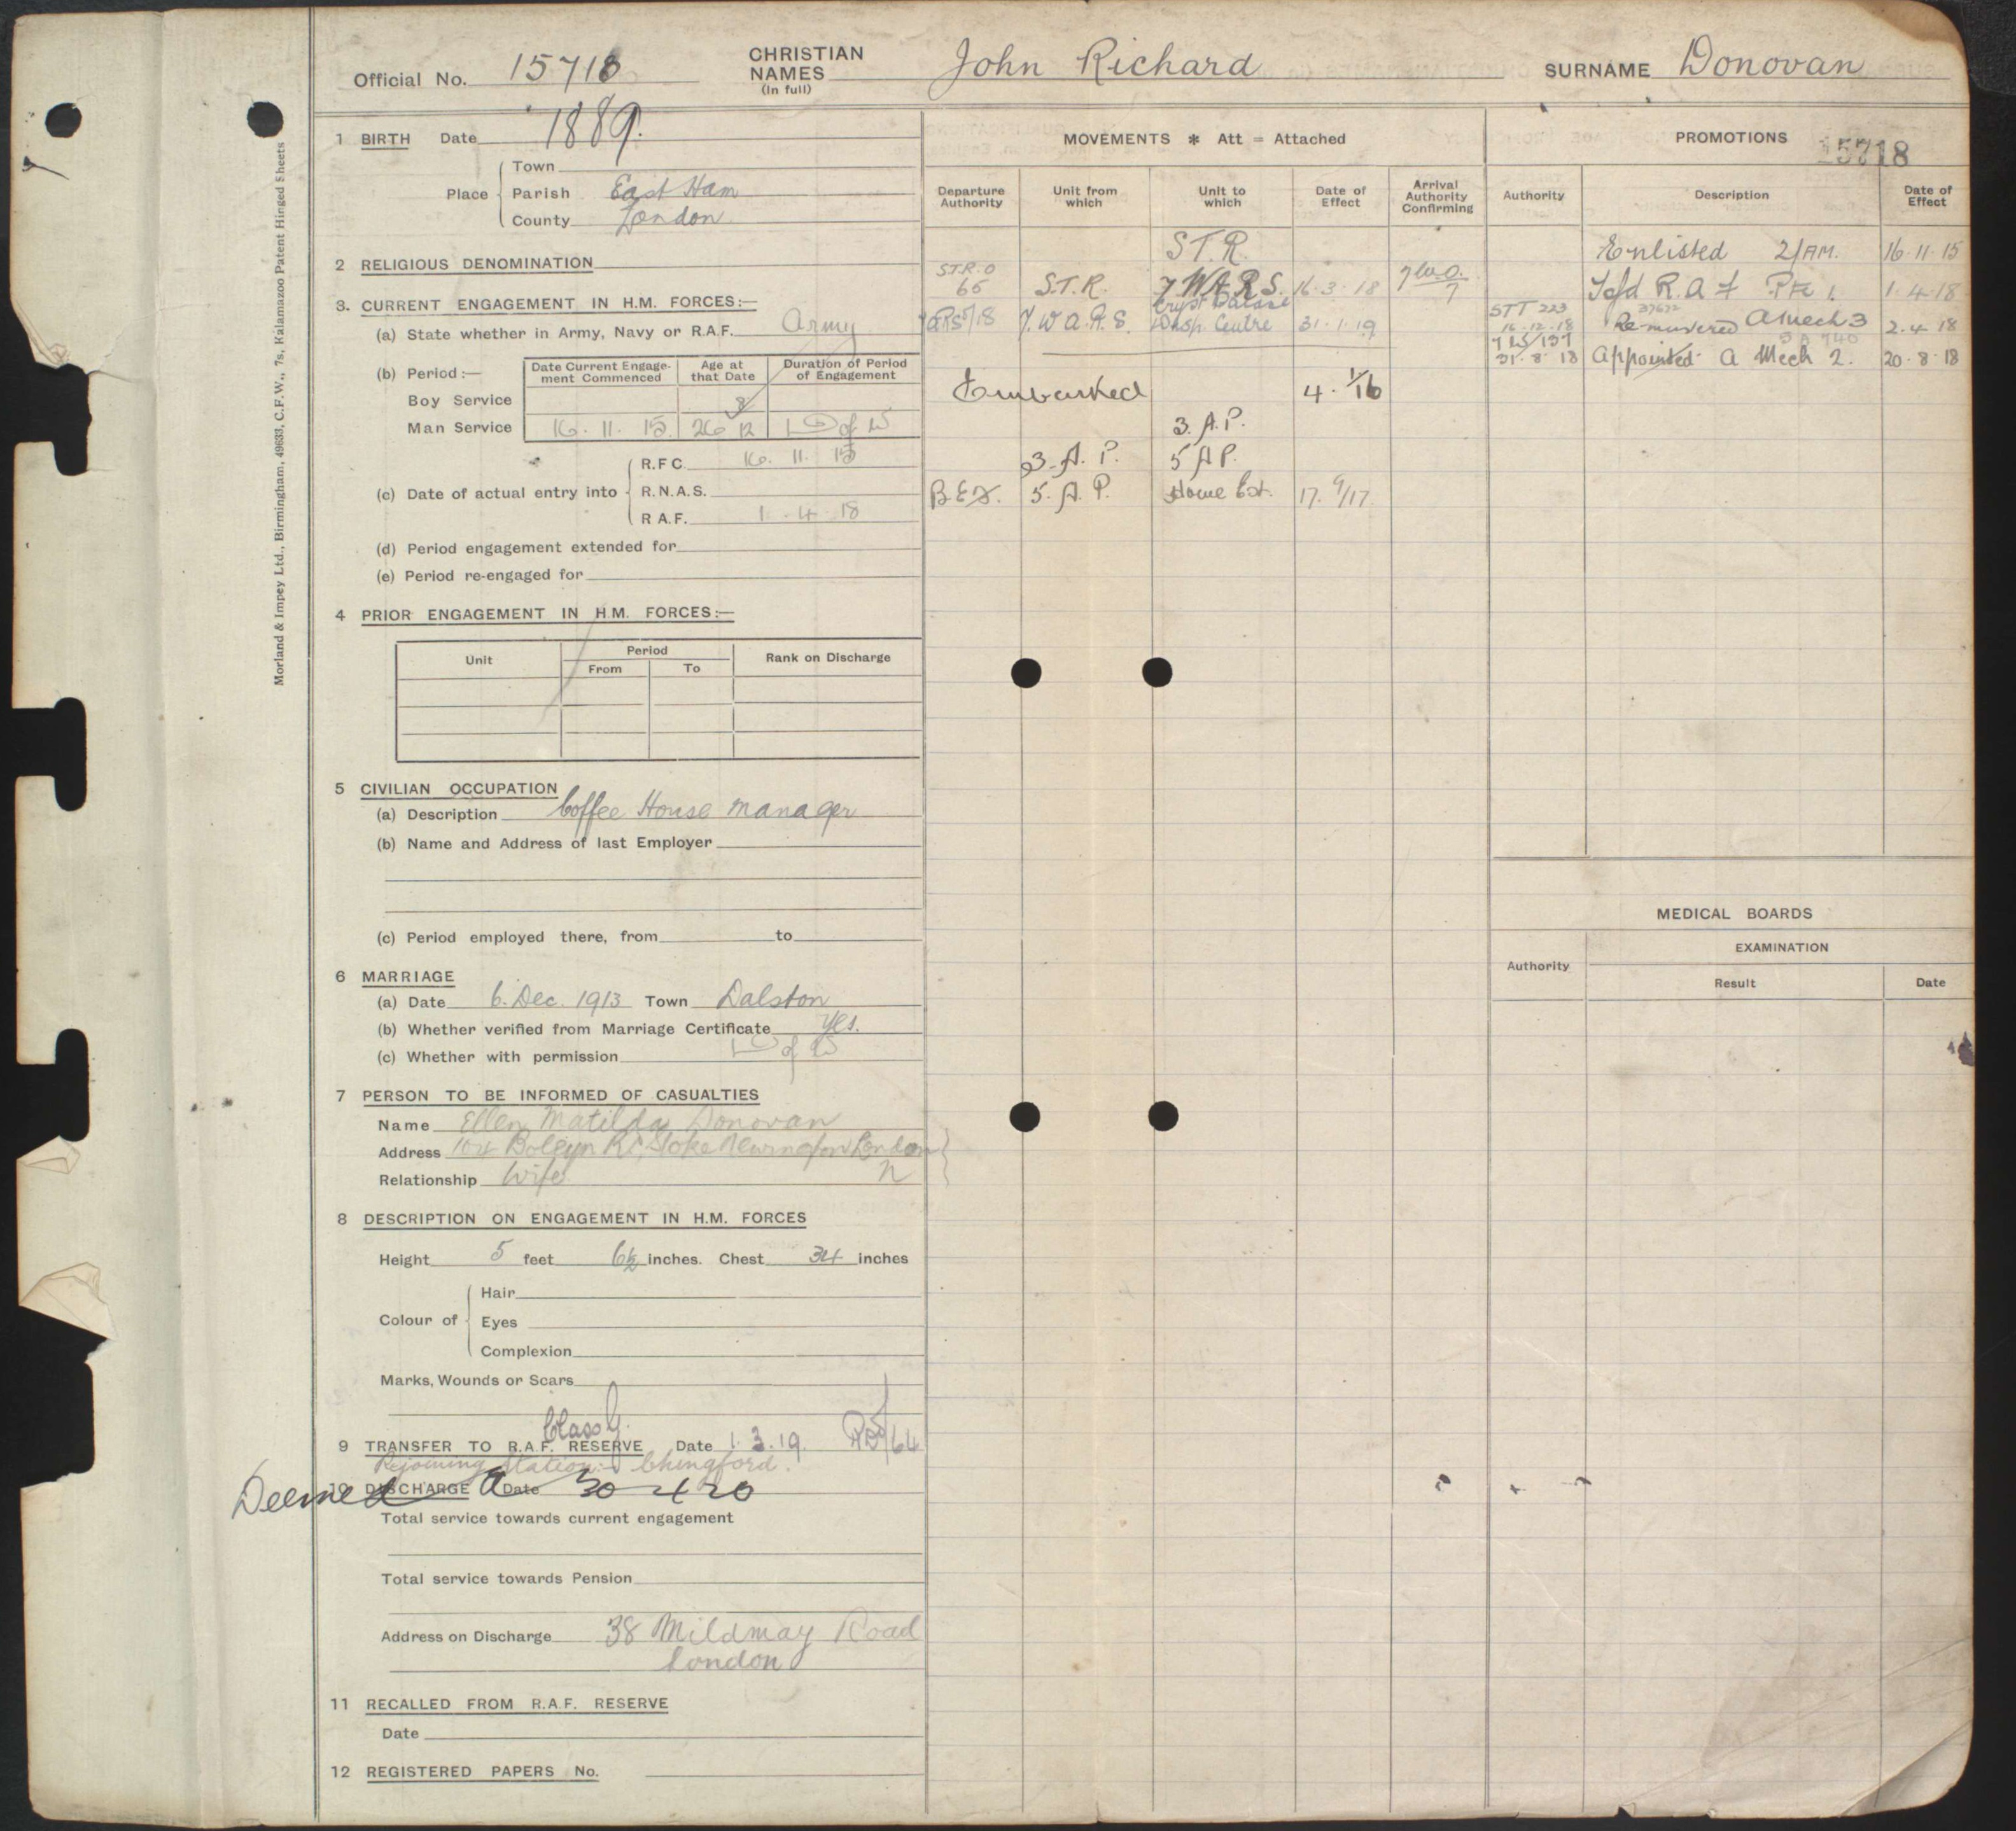 Official No. 15718 CHRISTIAN NAMES (In full) John Richard SURNAME Donovan
1 BIRTH Date 1889.
Place
Town
Parish East Ham
County London
2 RELIGIOUS DENOMINATION
3. CURRENT ENGAGEMENT IN H.M. FORCES:—
(a) State whether in Army, Navy or R.A.F. Army
(b) Period:—
Date Current Engagement Commenced | Age at that Date | Duration of Period of Engagement
Boy Service 8
Man Service 16. 11. 15 | 26 12 | D of W
(c) Date of actual entry into
R.F.C. 16. 11. 15
R.N.A.S.
R.A.F. 1. 4. 18
(d) Period engagement extended for
(e) Period re-engaged for
4 PRIOR ENGAGEMENT IN H.M. FORCES:—
Unit | Period | Rank on Discharge
From | To
5 CIVILIAN OCCUPATION
(a) Description Coffee House Manager
(b) Name and Address of last Employer
(c) Period employed there, from to
6 MARRIAGE
(a) Date 6. Dec. 1913 Town Dalston
(b) Whether verified from Marriage Certificate Yes.
(c) Whether with permission D of W
7 PERSON TO BE INFORMED OF CASUALTIES
Name Ellen Matilda Donovan
Address 104 Boleyn Rd, Stoke Newington London
Relationship Wife N
8 DESCRIPTION ON ENGAGEMENT IN H.M. FORCES
Height 5 feet 6½ inches. Chest 34 inches
Colour of
Hair
Eyes
Complexion
Marks, Wounds or Scars
Class G.
9 TRANSFER TO R.A.F. RESERVE Date 1.3.19.
Rejoining Station:- Chingford.
Deemed
10 DISCHARGE Date 30 4 20
Total service towards current engagement
Total service towards Pension
Address on Discharge 38 Mildmay Road
London
11 RECALLED FROM R.A.F. RESERVE
Date
12 REGISTERED PAPERS No.
MOVEMENTS * Att = Attached
Departure Authority | Unit from which | Unit to which | Date of Effect | Arrival Authority Confirming
S.T.R.
S.T.R.O 66 | S.T.R. | 7 W A R S. | 16.3.18 | 7 W.O. 7
7. W A. R. S. | Cryst Palace Disp. Centre | 31.1.19
Embarked 4. 1/16
3. A.P.
3. A. P. | 5 AP.
B.E.F. | 5. A. P. | Home Est. | 17. 9/17.
PROMOTIONS
15718
Authority | Description | Date of Effect
Enlisted 2/AM. | 16.11.15
Tsfd R.A.F. Pte 1. | 1.4.18
STT 223 16.12.18 | Re-mustered A Mech 3 | 2.4.18
31.8.18 | Appointed A Mech 2. | 20.8.18
MEDICAL BOARDS
Authority | EXAMINATION
Result | Date
Morland & Impey Ltd., Birmingham, 49633, C.F.W., 7s, Kalamazoo Patent Hinged Sheets